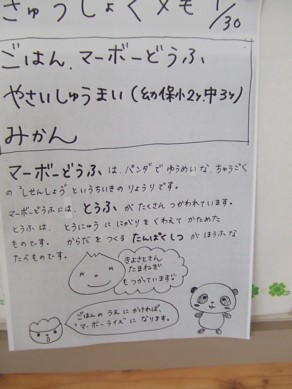 きゅうしょくメモ 1/30
ごはん、マーボーどうふ
やさいしゅうまい(幼保小2ヶ、中3ヶ)
みかん
マーボーどうふは、パンダでゆうめいな、ちゅうごく
の"しせんしょう"というちいきのりょうりです。
マーボーどうふには、とうふがたくさんつかわれています。
とうふは、とうにゅうににがりをくわえてかためた
ものです。からだをつくるたんぱくしつがほうふな
たべものです。
きよさとさん
たまねぎ
もつかっています
ごはんのうえにかければ、
"マーボーライス"になります。